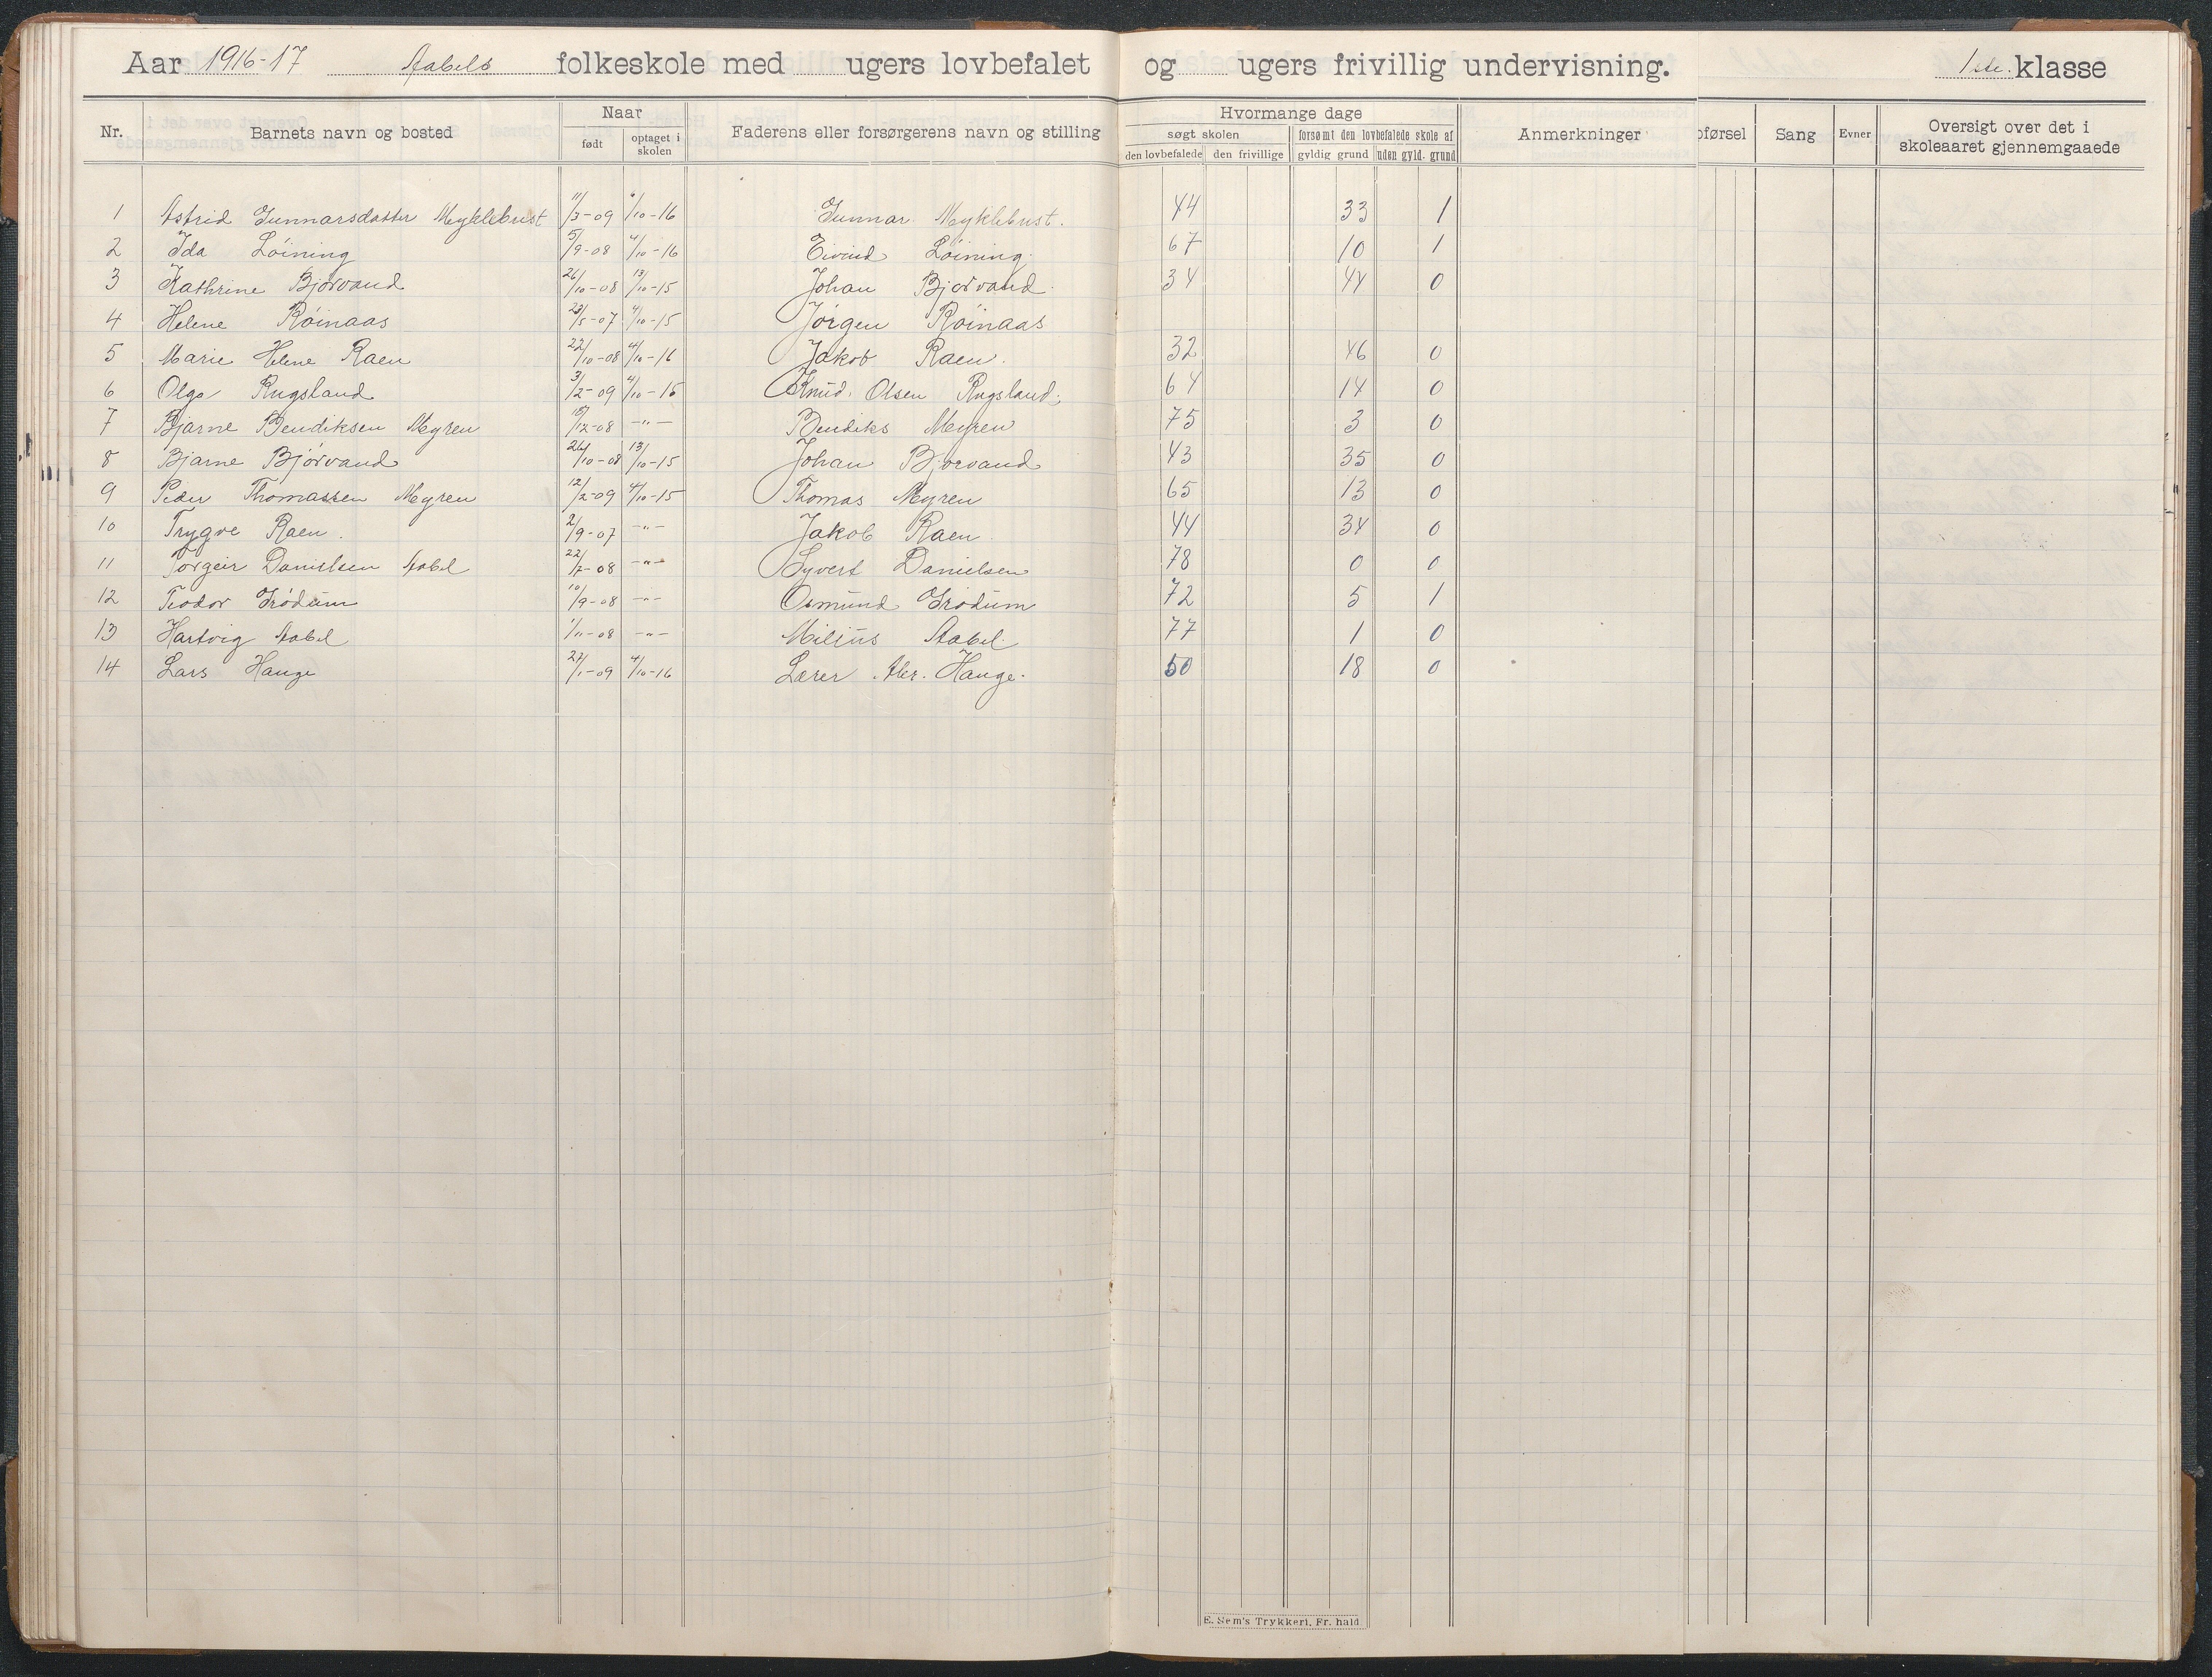 Aar 1916-17 Aabels folkeskole med ugers lovbefalet og ugers frivillig undervisning. 1ste. klasse
Nr. Barnets navn og bosted Naar Faderens eller forsørgerens navn og stilling Hvormange dage Anmerkninger oførsel Sang Evner Oversigt over det i skoleaaret gjennemgaaede
født optaget i skolen søgt skolen forsømt den lovbefalede skole af
den lovbefalede den frivillige gyldig grund uden gyld. grund
1 Astrid Gunnarsdatter Myklebust 11/3-09 4/10-16 Gunnar Myklebust. 44 33 1
2 Ida Løining 5/9-08 4/10-16 Eivind Løining. 67 10 1
3 Kathrine Bjorvand 26/10-08 13/10-15 Johan Bjorvand. 34 44 0
4 Helene Røinaas 23/5-07 4/10-15 Jørgen Røinaas
5 Marie Helene Raen 22/10-08 4/10-16 Jakob Raen. 32 46 0
6 Olga Rugsland 3/2-09 4/10-15 Knud. Olsen Rugsland. 64 14 0
7 Bjarne Bendiksen Myren 15/12-08 -"- Bendiks Myren 75 3 0
8 Bjarne Bjørvand 26/10-08 13/10-15 Johan Bjorvand 43 35 0
9 Peder Thomassen Myren 12/2-09 4/10-15 Thomas Myren 65 13 0
10 Trygve Raen. 2/9-07 -"- Jakob Raen 44 34 0
11 Torgeir Danielsen Aabel 22/7-08 -"- Syvert Danielsen 78 0 0
12 Teodor Grødum 10/9-08 -"- Osmund Grødum 72 5 1
13 Hartvig Aabel 1/11-08 -"- Milius Aabel. 77 1 0
14 Lars Hauge 27/1-09 4/10-16 Lærer Hauge. 50 18 0
E. Sem's Trykkeri, Fr. hald